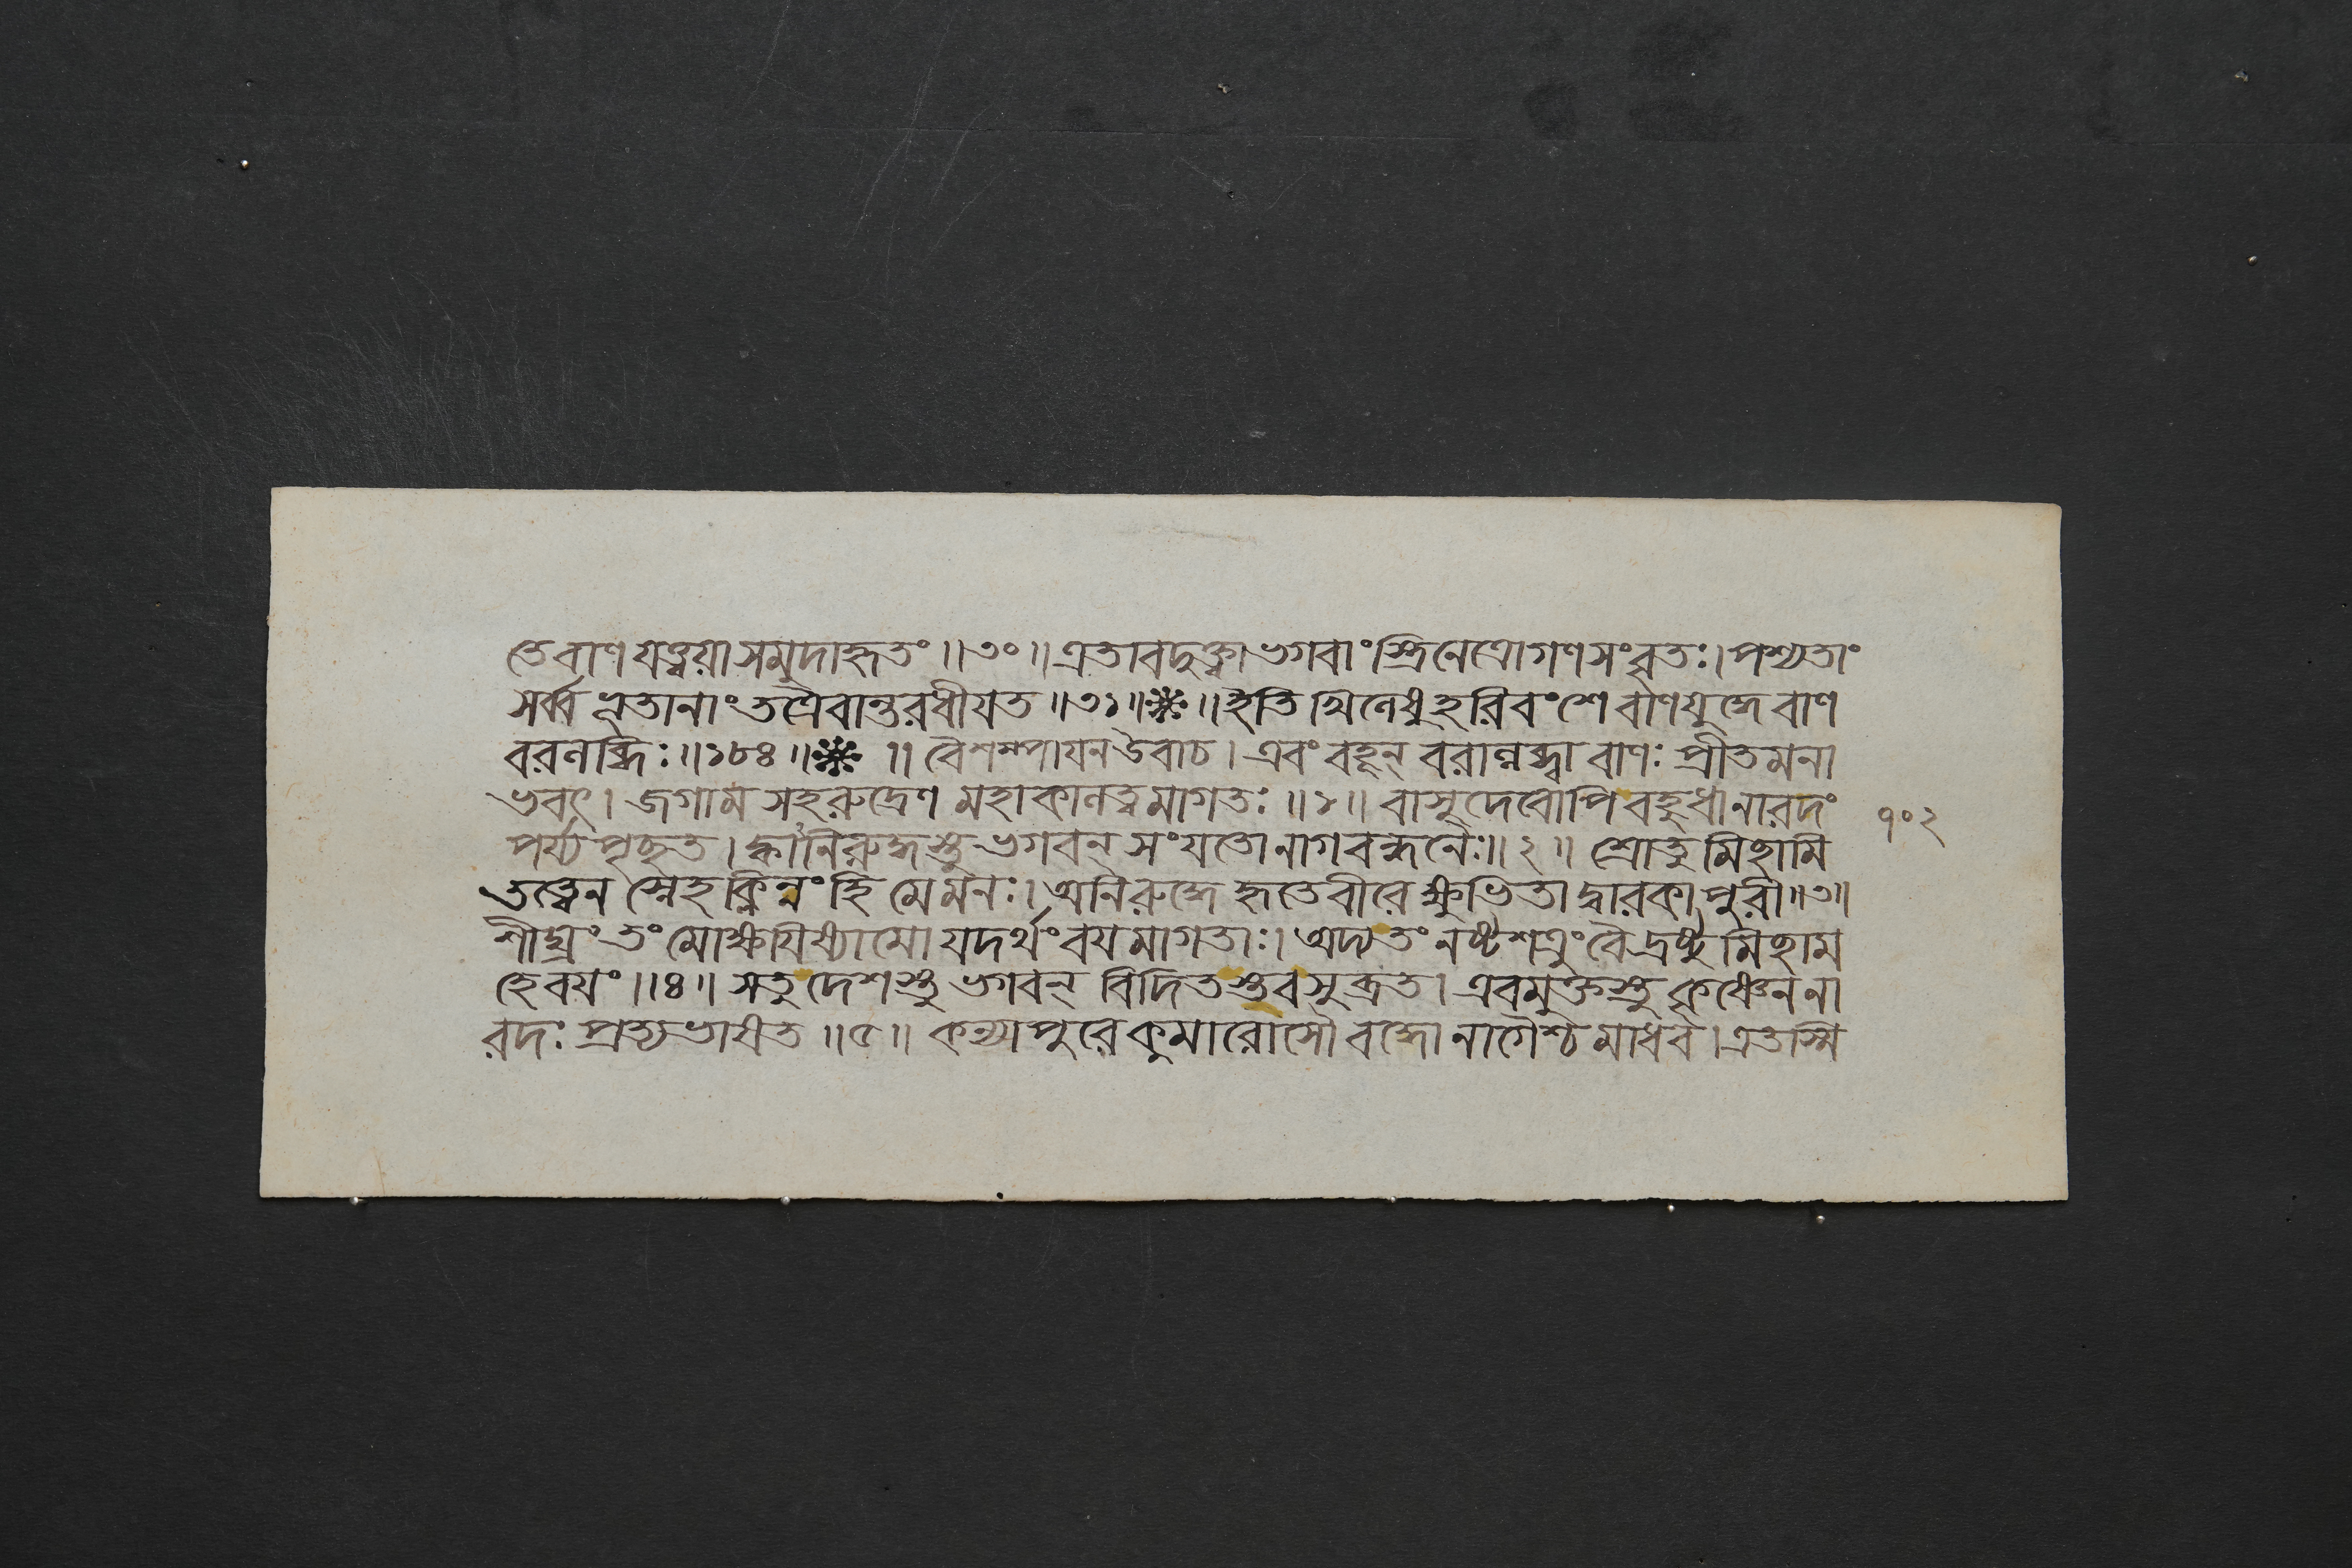 তে বাণ যত্ত্বয়া সমুদাহৃতং ॥৩০॥ এতাবদুক্ত্বা ভগবাংস্ত্রিনেত্রো গণসংবৃতঃ। পশ্যতাং
সর্ব্বভূতানাং তত্রৈবান্তরধীযত ॥৩১॥❋॥ ইতি খিলেষু হরিবংশে বাণযুদ্ধে বাণ
বরলব্ধিঃ ॥১৮৪॥❋॥ বৈশম্পাযন উবাচ। এবং বহূন্ বরাল্লব্ধ্বা বাণঃ প্রীতমনা
ভবৎ। জগাম সহ রুদ্রেণ মহাকালত্বমাগতঃ ॥১॥ বাসুদেবোপি বহুধা নারদং
পর্য্যপৃচ্ছত। ক্বানিরুদ্ধস্তু ভগবন্ সংযতো নাগবন্ধনৈঃ॥২॥ শ্রোতুমিছামি
তত্ত্বেন স্নেহক্লিন্নং হি মে মনঃ। অনিরুদ্ধে হৃতে বীরে ক্ষুভিতা দ্বারকা পুরী॥৩॥
শীঘ্রং তং মোক্ষযিষ্যামো যদর্থং বযমাগতাঃ। অদ্য তং নষ্টশত্রুং বৈ দ্রষ্টুমিছাম
হে বয়ং ॥৪॥ স তু দেশস্তু ভগবন্ বিদিতস্তব সুব্রত। এবমুক্তস্তু কৃষ্ণেন না
রদঃ প্রত্যভাষত ॥৫॥ কন্যাপুরে কুমারোসৌ বদ্ধো নাগৈশ্চ মাধব। এতস্মি
৭০২